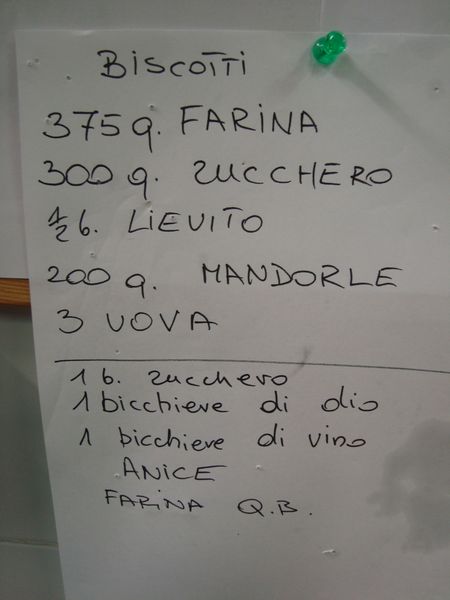 BISCOTTI
375 g. FARINA
300 g. ZUCCHERO
1/2 b. LIEVITO
200 g. MANDORLE
3 UOVA
1 b. zucchero
1 bicchiere di olio
1 bicchiere di vino
ANICE
FARINA Q.B.